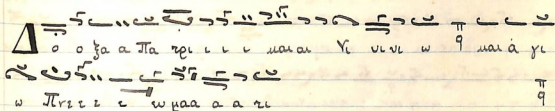 Δ ο ο ξα α Πα τρι ι ι ι και αι Υι υι υι ω και ά γι
ω Πνε ε ε ε ευ μα α α α τι